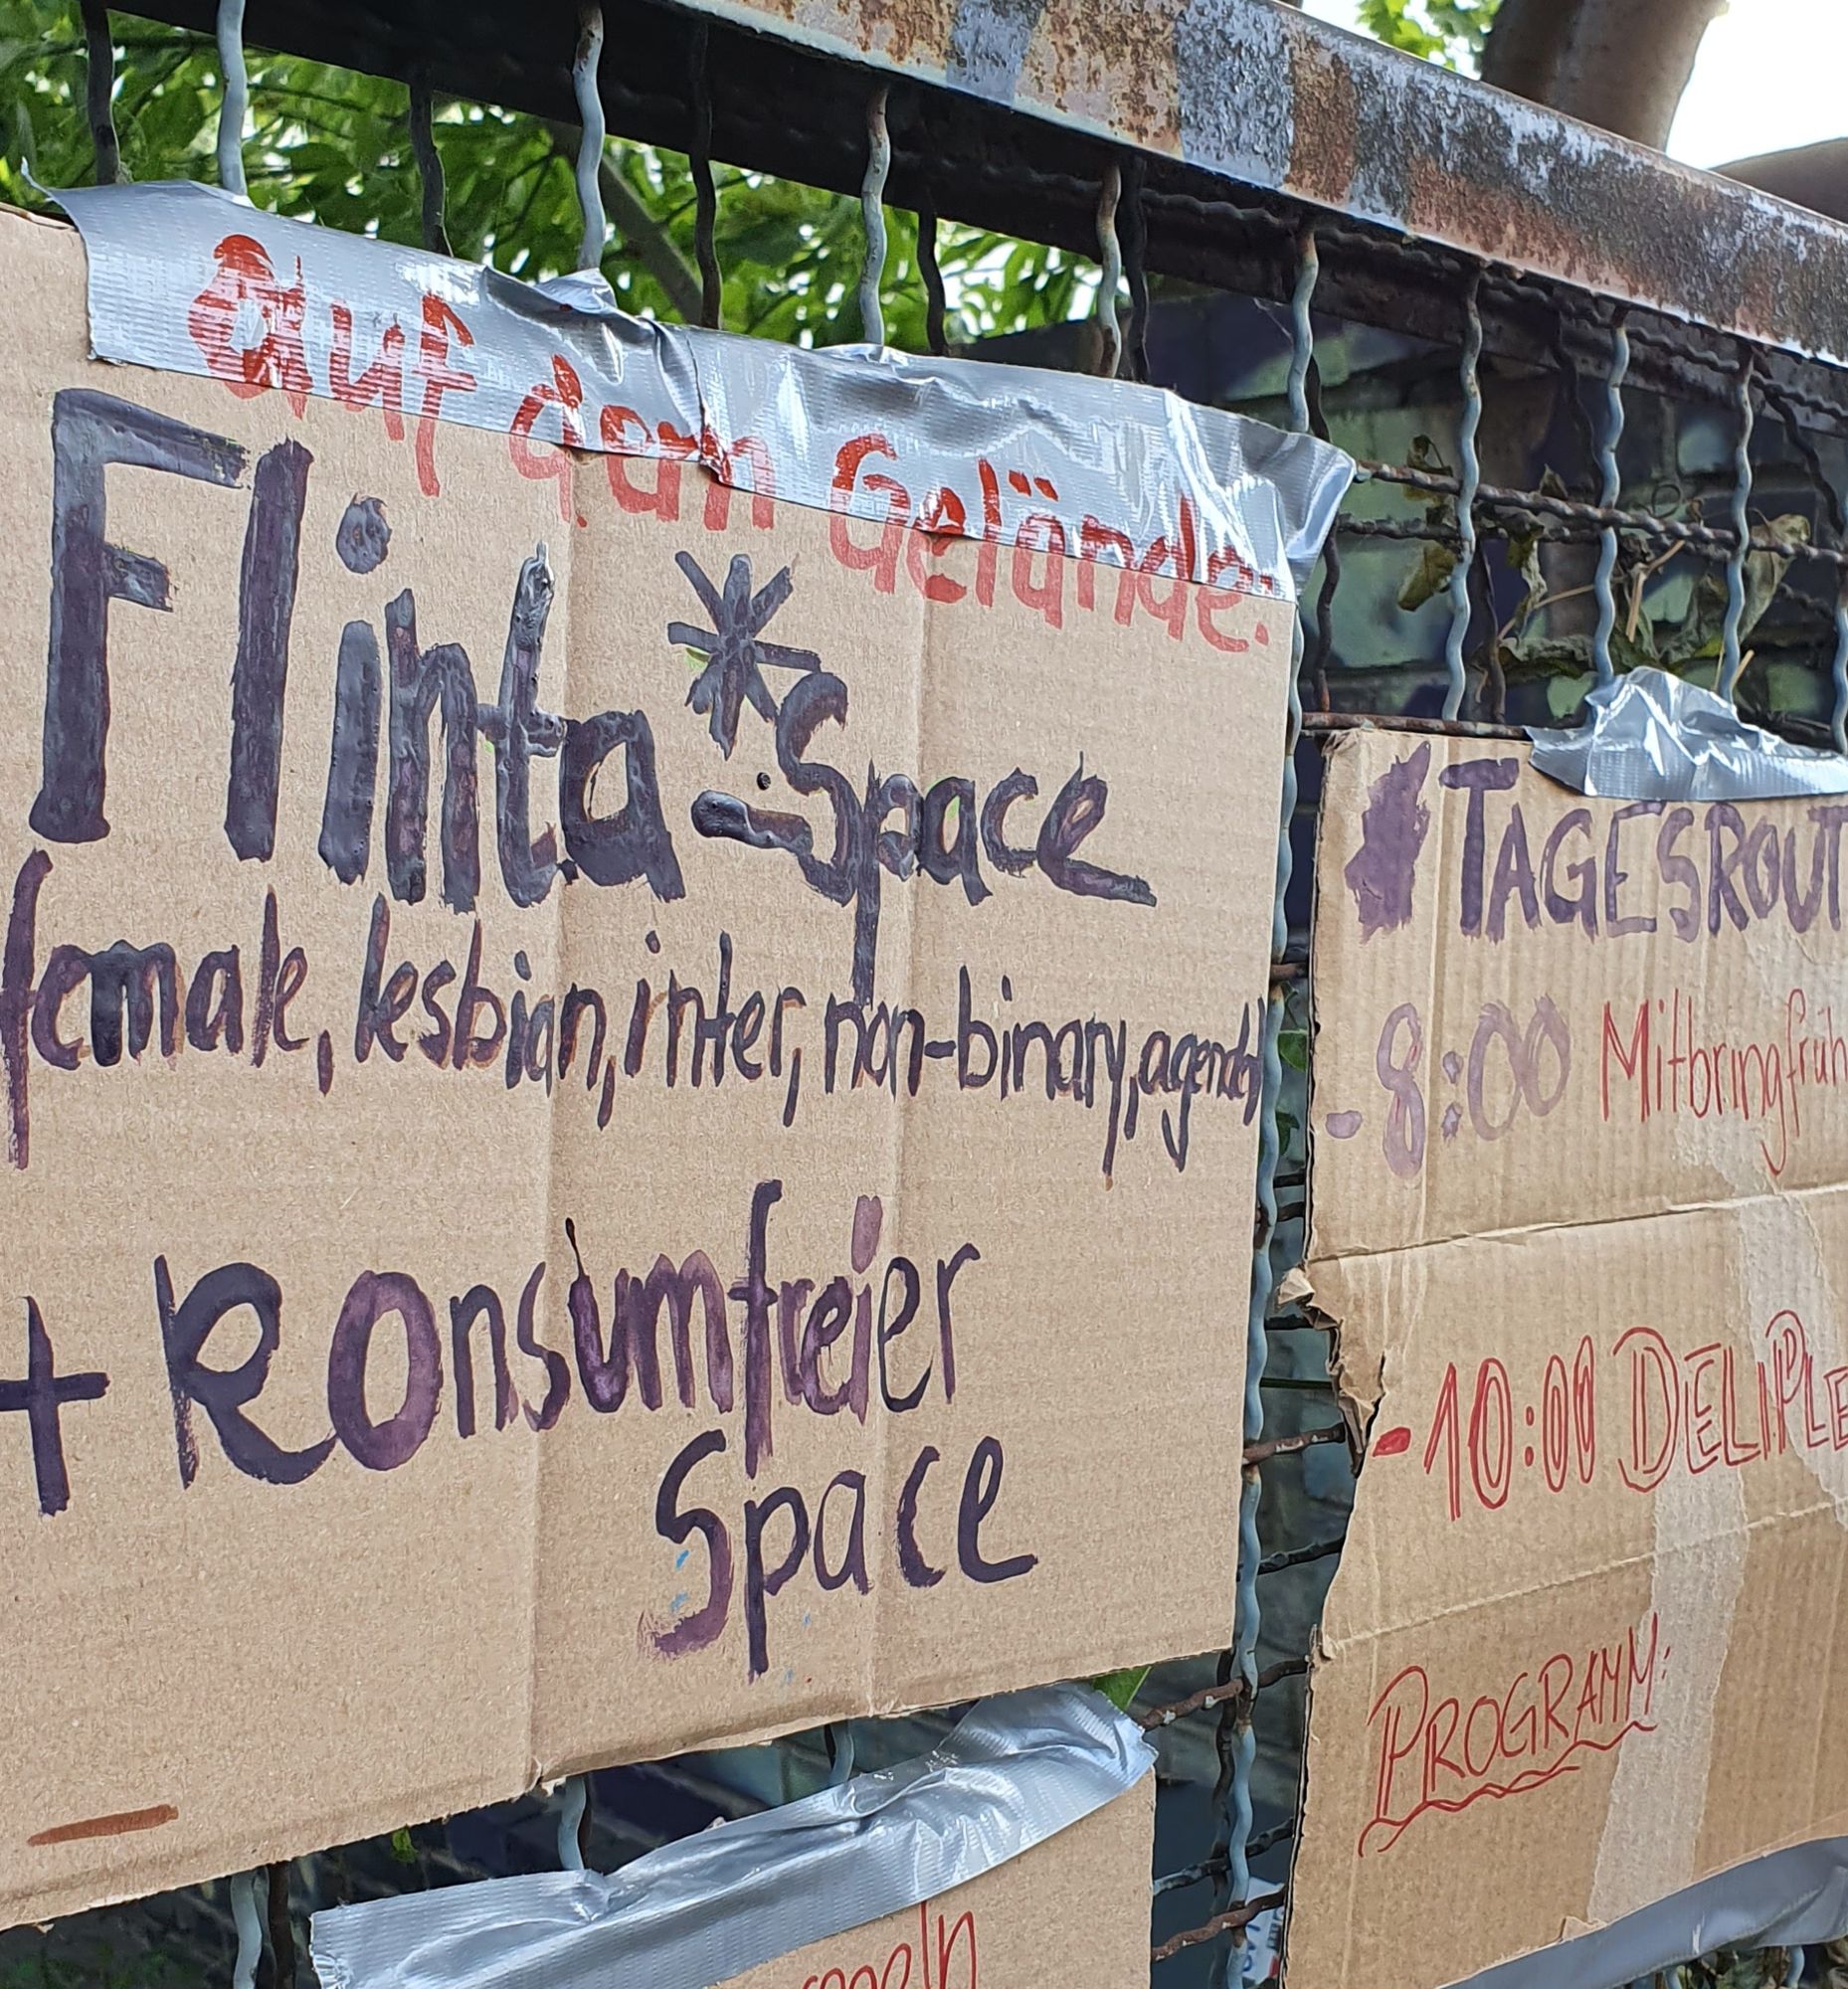 Auf dem Gelände:
Flinta*-Space
female, lesbian, inter, non-binary, agender
+ Konsumfreier
Space
TAGESROUT
- 8:00 Mitbringfrüh
- 10:00 DELIPLE
PROGRAMM: